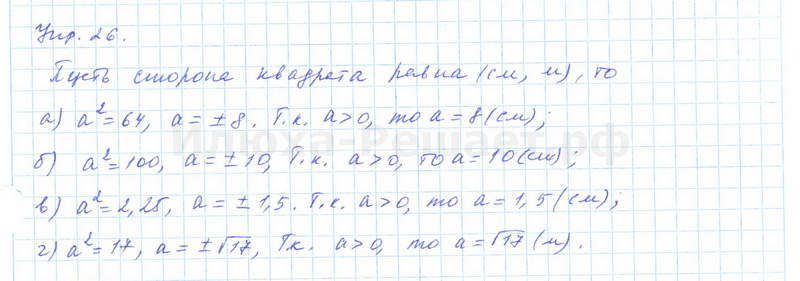 Упр. 26.
Пусть сторона квадрата равна (см, м), то
а) a²=64, a = ±8. Т.к. a>0, то a = 8 (см);
б) a²=100, a = ±10, Т.к. a>0, то a = 10 (см);
в) a²=2,25, a = ±1,5. Т.к. a>0, то a = 1,5 (см);
г) a²=17, a = ±√17, Т.к. a>0, то a=√17 (м).
Илюха-Решает.рф